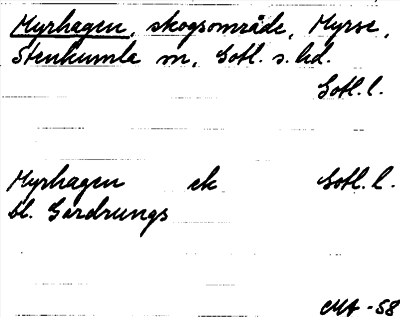 Myrhagen, skogsområde, Myrse,
Stenkumla sn, Gotl. s. hd.
Gotl. l.
Myrhagen ek Gotl. l.
bl. Gerdrungs
-58